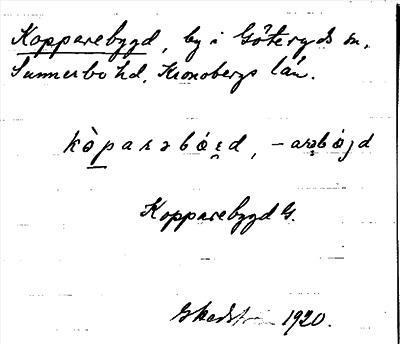 Kopparebygd, by i Göteryds sn.
Sunnerbo hd. Kronobergs län.
kòparəbǿɪ̯d, -arəbǿjd
Kopparebygd G.
1920.